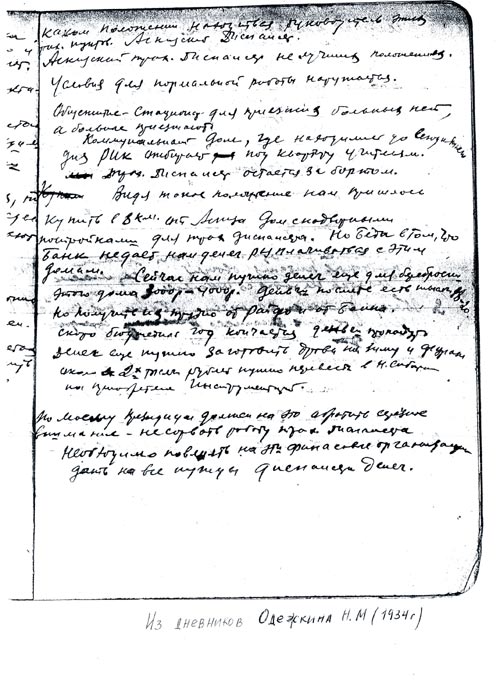 каком положении находиться руководитель этих
Аскизский Диспансер.
Аскизский трах. диспансер не лучших положениях.
Условия для нормальной работы нарушается.
Общежитие-стационар для приезжих больных нет,
а больные приезжают
Коммунальный дом, где находимся до
РИК отбирает под квартиру учителям.
трах. Диспансер остается за бортом.
Видя такое положение нам пришлось
купить в 8 км. от Аскиза Дом с надворными
постройками для трах диспансера. Но беда в том, что
Банк недает нам денег расплачиваться с этим
домам. Сейчас нам нужно денег еще для
этого дома 3000р-4000р. деньги по смете есть
но получить их нужно от РайФО и от Банка.
скоро бюджетный год кончается деньги пропадут
денег еще нужно заготовить дрова на зиму и фураж
около 2х тысяч рублей нужно перевести в Н. Сибирск
на приобретение инструментов.
По моему президиум должен на это обратить серьезное
внимание - не сорвать работу трах диспансера
Необходимо повлиять на эти финансовые организации
дать на все нужды диспансера денег.
Из дневников Одежкина Н.М (1934г)